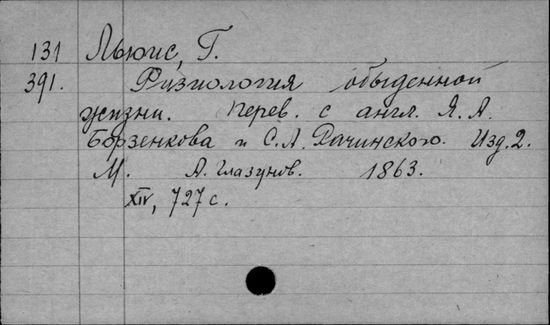 131 Льюис, Г.
391. Физиология обыденной
жизни. Перев. с англ. Я. А.
Борзенкова и С. А. Рачинского. Изд. 2.
М. А. Глазунов. 1863.
XIV, 727 с.